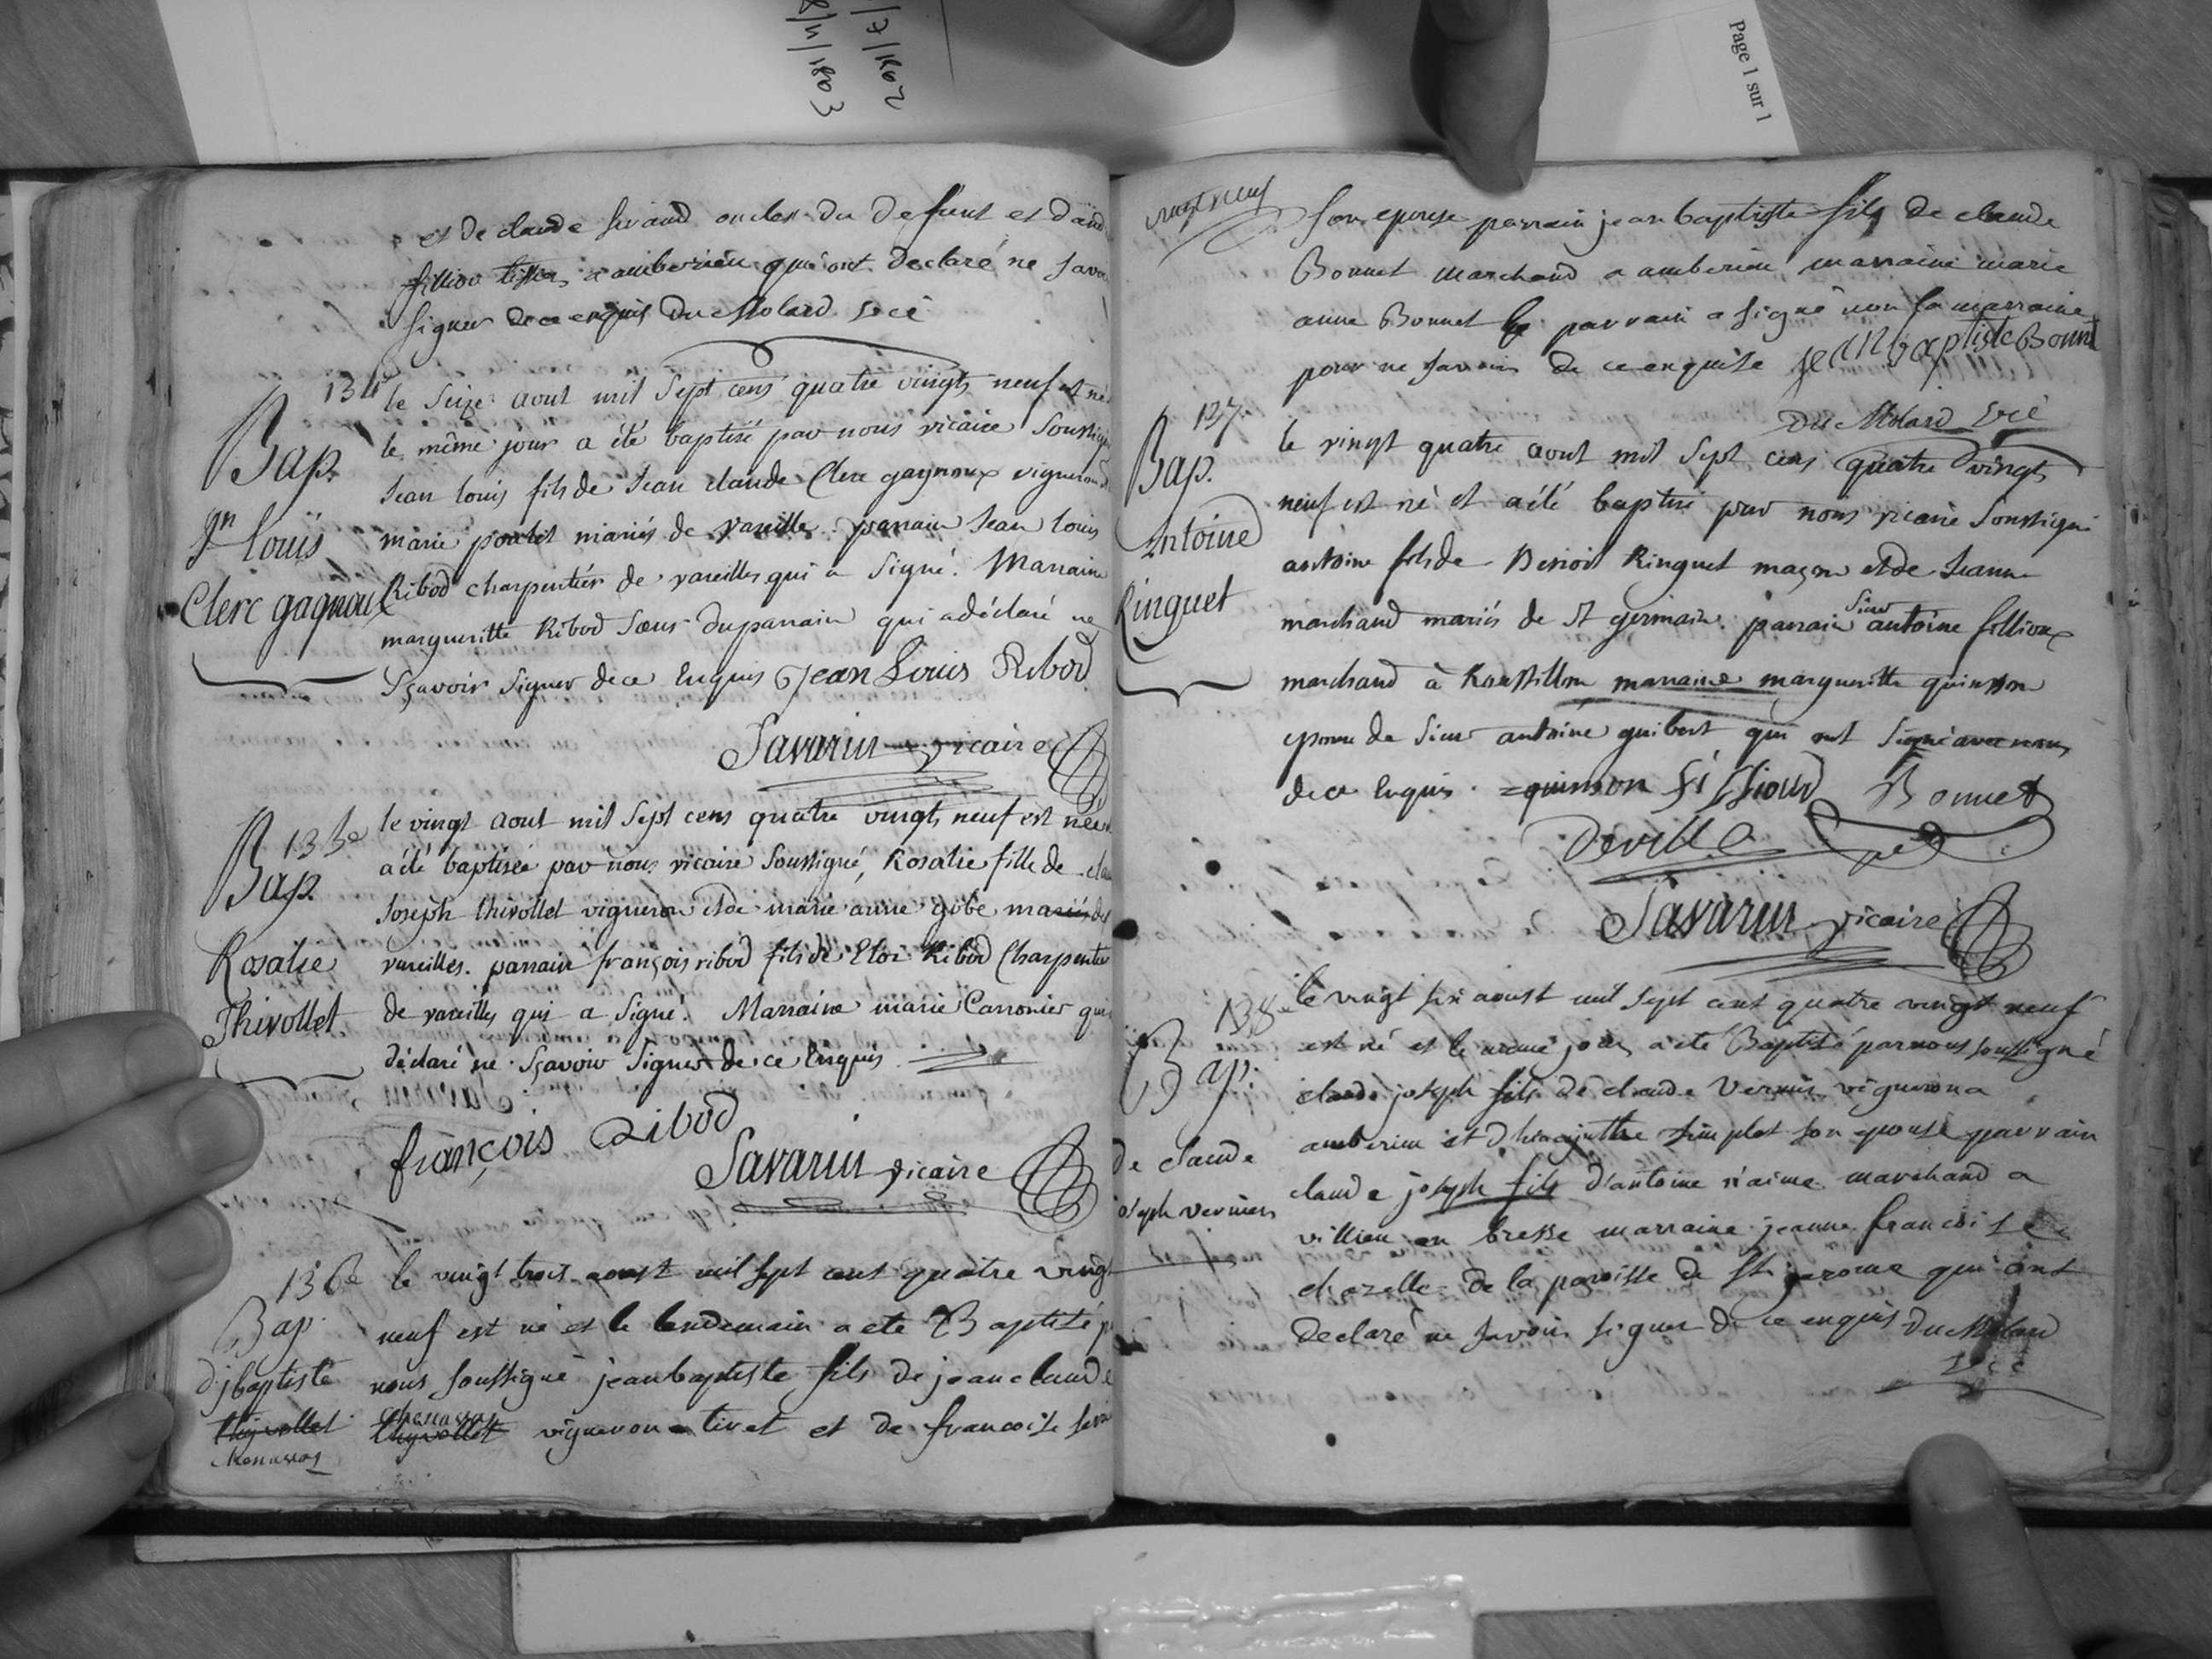 8/11/1803
17/1802
Page 1 sur 1
et de claude sivand oncles du defunt et d'and
fillion a amberieu qui ont declaré ne savo
signer de ce enquis Du Molard
134e
le seize aout mil sept cens quatre vingts neuf est né
Bap.
le même jour a été baptisé par nous vicaire soussigné
Jean louis fils de Jean claude Clerc gagnoux vigneron
jn louis
marie mariés de vareille. parrain Jean louis
Clerc gagnoux
Ribod charpentier de vareilles qui a signé. Marraine
margueritte Ribod sœur du parrain qui a déclaré ne
sçavoir signer de ce enquis Jean Louis Ribod
Savarin vicaire
135e
le vingt aout mil sept cens quatre vingts neuf est née
Bap.
a été baptisée par nous vicaire soussigné, Rosalie fille de
Joseph thivollet vigneron et de marie anne gobe mariés de
Rosalie
vareilles. parrain françois ribod fils de Eloi Ribod Charpentier
Thivollet.
de vareilles qui a signé. Marraine marie Carronier qui
déclaré ne sçavoir signer de ce enquis
françois Ribod
Savarin vicaire
136e
le vingt trois aoust mil sept cent quatre vingt
Bap.
neuf est né et le lendemain a été Baptisé p
d'j baptiste
nous soussigné jean baptiste fils de jean claude
thyvollet
thyvollet vigneron a tiret et de francoise
vingt neuf
son epouse parrain jean baptiste fils de claude
Bonnet marchand a amberieu marraine marie
anne Bonnet le parrain a signé non la marraine
pour ne savoir de ce enquise jean baptiste Bonnet
Du Molard
137e
le vingt quatre aout mil sept cens quatre vingts
Bap.
neuf est né et a été baptisé par nous vicaire soussigné
Antoine
antoine fils de Benoit Ringuet maçon et de Jeanne
Ringuet
marchand mariés de St germain. parrain sieur antoine fillioux
marchand à Roussillon marraine margueritte quinson
epouse de sieur antoine guibert qui ont signé avec nous
de ce enquis. quinson fillioud Bonnet
Deville
Savarin vicaire
138e
le vingt six aoust mil sept cent quatre vingt neuf
Bap:
est né et le meme jour a été Baptisé par nous soussigné
claude joseph fils de claude Vernier vigneron a
de claude
amberieu et d'hiacynthe simplet son epouse parrain
joseph vernier
claude joseph fils d'antoine marchand a
villieu en bresse marraine jeanne francoise
chazelle de la paroisse de St jerome qui ont
declaré ne savoir signer de ce enquis Du Molard